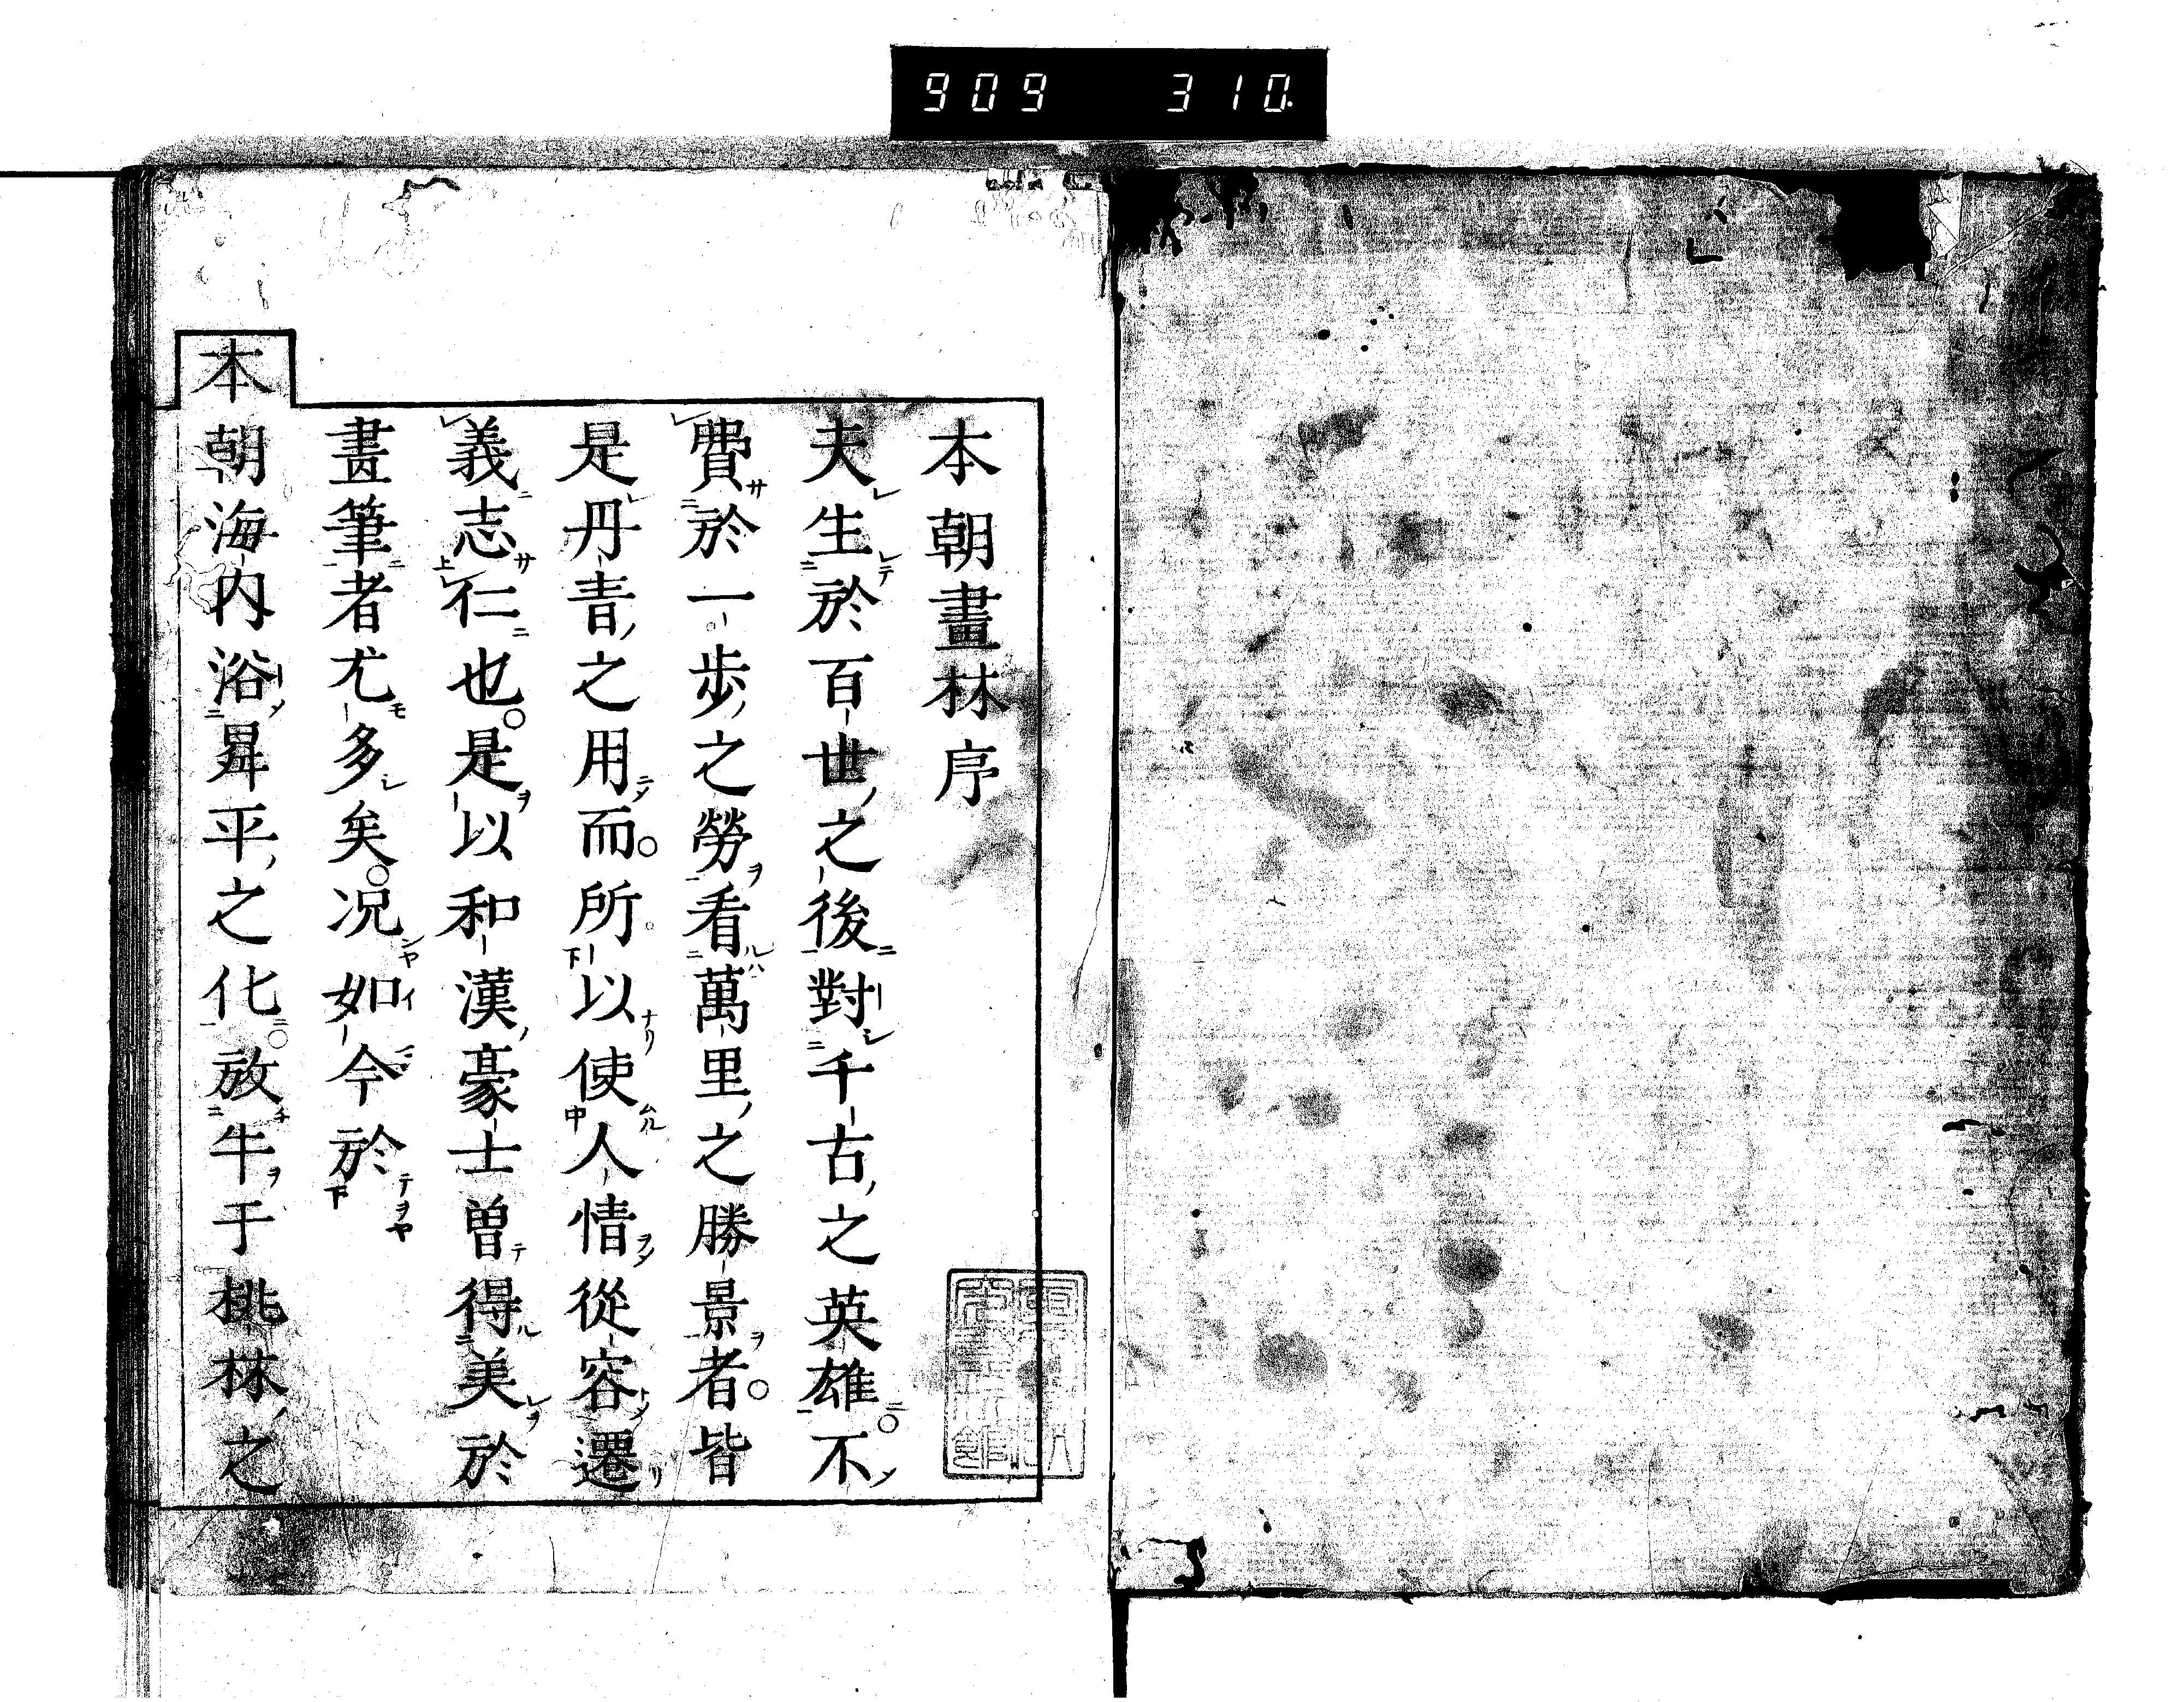 909 310
本朝畫林序
夫生於百世之後對千古之英雄不
費於一歩之勞看萬里之勝景者皆
是丹青之用而所以使人情從容遷
義志仁也是以和漢豪士曽得美於
畫筆者尤多矣况如今於
本朝海内浴昇平之化放牛于桃林之